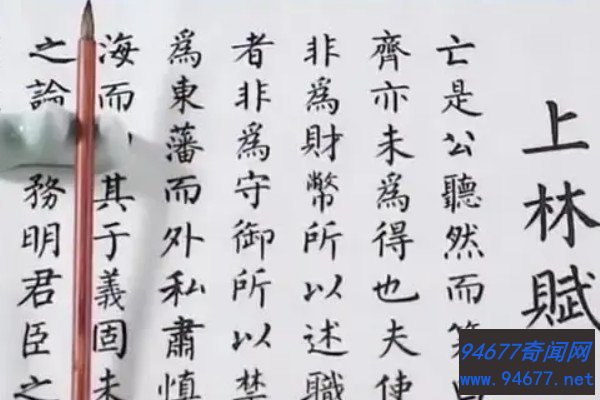 上林賦
亡是公聽然而笑
齊亦未爲得也夫使
非爲財幣所以述職
者非爲守御所以禁
爲東藩而外私肅慎
海而其于義固未
之論務明君臣之
94677奇闻网
www.94677.net